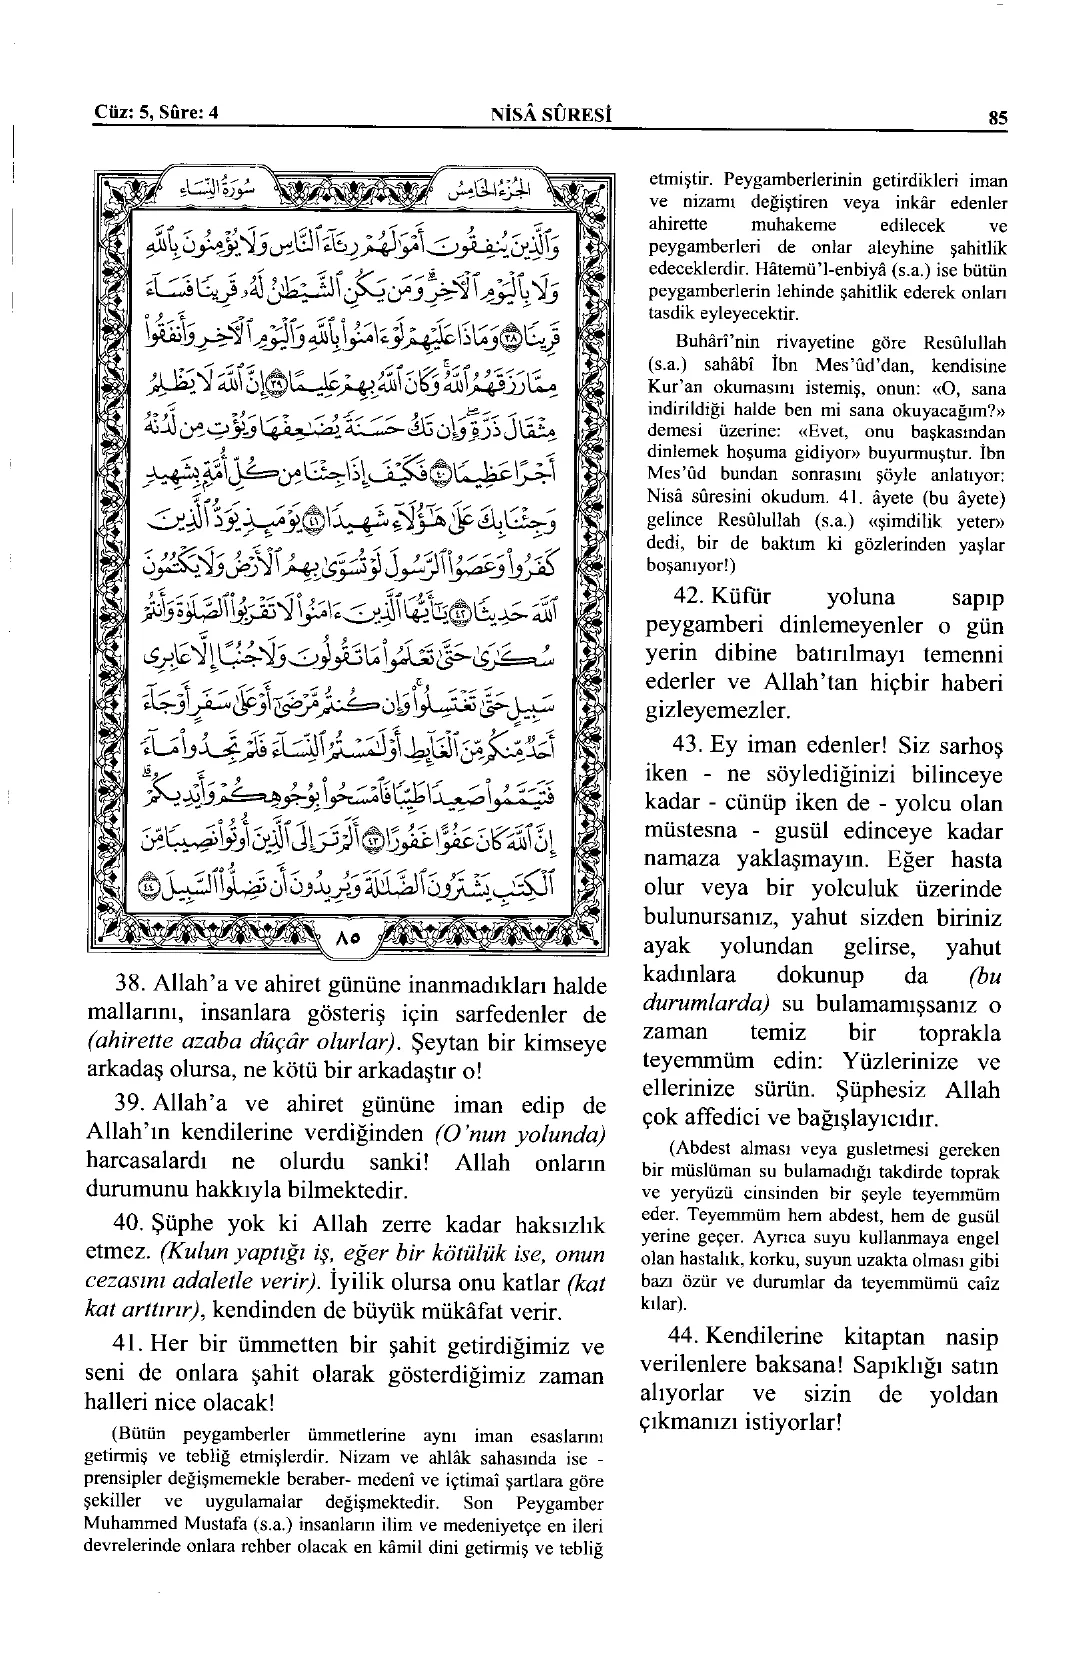 Cüz: 5, Sûre: 4
NİSÂ SÛRESİ
85
سُورَةُ النِّسَاءِ
الجُزْءُ الخَامِسُ
وَالَّذِينَ يُنْفِقُونَ أَمْوَالَهُمْ رِئَاءَ النَّاسِ وَلَا يُؤْمِنُونَ بِاللَّهِ
وَلَا بِالْيَوْمِ الْآخِرِ وَمَنْ يَكُنِ الشَّيْطَانُ لَهُ قَرِينًا فَسَاءَ
قَرِينًا ﴿٣٨﴾ وَمَاذَا عَلَيْهِمْ لَوْ آمَنُوا بِاللَّهِ وَالْيَوْمِ الْآخِرِ وَأَنْفَقُوا
مِمَّا رَزَقَهُمُ اللَّهُ وَكَانَ اللَّهُ بِهِمْ عَلِيمًا ﴿٣٩﴾ إِنَّ اللَّهَ لَا يَظْلِمُ
مِثْقَالَ ذَرَّةٍ وَإِنْ تَكُ حَسَنَةً يُضَاعِفْهَا وَيُؤْتِ مِنْ لَدُنْهُ
أَجْرًا عَظِيمًا ﴿٤٠﴾ فَكَيْفَ إِذَا جِئْنَا مِنْ كُلِّ أُمَّةٍ بِشَهِيدٍ
وَجِئْنَا بِكَ عَلَى هَؤُلَاءِ شَهِيدًا ﴿٤١﴾ يَوْمَئِذٍ يَوَدُّ الَّذِينَ
كَفَرُوا وَعَصَوُا الرَّسُولَ لَوْ تُسَوَّى بِهِمُ الْأَرْضُ وَلَا يَكْتُمُونَ
اللَّهَ حَدِيثًا ﴿٤٢﴾ يَا أَيُّهَا الَّذِينَ آمَنُوا لَا تَقْرَبُوا الصَّلَاةَ وَأَنْتُمْ
سُكَارَى حَتَّى تَعْلَمُوا مَا تَقُولُونَ وَلَا جُنُبًا إِلَّا عَابِرِي
سَبِيلٍ حَتَّى تَغْتَسِلُوا وَإِنْ كُنْتُمْ مَرْضَى أَوْ عَلَى سَفَرٍ أَوْ جَاءَ
أَحَدٌ مِنْكُمْ مِنَ الْغَائِطِ أَوْ لَامَسْتُمُ النِّسَاءَ فَلَمْ تَجِدُوا مَاءً
فَتَيَمَّمُوا صَعِيدًا طَيِّبًا فَامْسَحُوا بِوُجُوهِكُمْ وَأَيْدِيكُمْ
إِنَّ اللَّهَ كَانَ عَفُوًّا غَفُورًا ﴿٤٣﴾ أَلَمْ تَرَ إِلَى الَّذِينَ أُوتُوا نَصِيبًا مِنَ
الْكِتَابِ يَشْتَرُونَ الضَّلَالَةَ وَيُرِيدُونَ أَنْ تَضِلُّوا السَّبِيلَ ﴿٤٤﴾
٨٥
38. Allah’a ve ahiret gününe inanmadıkları halde
mallarını, insanlara gösteriş için sarfedenler de
(ahirette azaba dûçâr olurlar). Şeytan bir kimseye
arkadaş olursa, ne kötü bir arkadaştır o!
39. Allah’a ve ahiret gününe iman edip de
Allah’ın kendilerine verdiğinden (O’nun yolunda)
harcasalardı ne olurdu sanki! Allah onların
durumunu hakkıyla bilmektedir.
40. Şüphe yok ki Allah zerre kadar haksızlık
etmez. (Kulun yaptığı iş, eğer bir kötülük ise, onun
cezasını adaletle verir). İyilik olursa onu katlar (kat
kat arttırır), kendinden de büyük mükâfat verir.
41. Her bir ümmetten bir şahit getirdiğimiz ve
seni de onlara şahit olarak gösterdiğimiz zaman
halleri nice olacak!
(Bütün peygamberler ümmetlerine aynı iman esaslarını
getirmiş ve tebliğ etmişlerdir. Nizam ve ahlâk sahasında ise -
prensipler değişmemekle beraber- medenî ve içtimaî şartlara göre
şekiller ve uygulamalar değişmektedir. Son Peygamber
Muhammed Mustafa (s.a.) insanların ilim ve medeniyetçe en ileri
devrelerinde onlara rehber olacak en kâmil dini getirmiş ve tebliğ
etmiştir. Peygamberlerinin getirdikleri iman
ve nizamı değiştiren veya inkâr edenler
ahirette muhakeme edilecek ve
peygamberleri de onlar aleyhine şahitlik
edeceklerdir. Hâtemü’l-enbiyâ (s.a.) ise bütün
peygamberlerin lehinde şahitlik ederek onları
tasdik eyleyecektir.
Buhârî’nin rivayetine göre Resûlullah
(s.a.) sahâbî İbn Mes’ûd’dan, kendisine
Kur’an okumasını istemiş, onun: «O, sana
indirildiği halde ben mi sana okuyacağım?»
demesi üzerine: «Evet, onu başkasından
dinlemek hoşuma gidiyor» buyurmuştur. İbn
Mes’ûd bundan sonrasını şöyle anlatıyor:
Nisâ sûresini okudum. 41. âyete (bu âyete)
gelince Resûlullah (s.a.) «şimdilik yeter»
dedi, bir de baktım ki gözlerinden yaşlar
boşanıyor!)
42. Küfür yoluna sapıp
peygamberi dinlemeyenler o gün
yerin dibine batırılmayı temenni
ederler ve Allah’tan hiçbir haberi
gizleyemezler.
43. Ey iman edenler! Siz sarhoş
iken - ne söylediğinizi bilinceye
kadar - cünüp iken de - yolcu olan
müstesna - gusül edinceye kadar
namaza yaklaşmayın. Eğer hasta
olur veya bir yolculuk üzerinde
bulunursanız, yahut sizden biriniz
ayak yolundan gelirse, yahut
kadınlara dokunup da (bu
durumlarda) su bulamamışsanız o
zaman temiz bir toprakla
teyemmüm edin: Yüzlerinize ve
ellerinize sürün. Şüphesiz Allah
çok affedici ve bağışlayıcıdır.
(Abdest alması veya gusletmesi gereken
bir müslüman su bulamadığı takdirde toprak
ve yeryüzü cinsinden bir şeyle teyemmüm
eder. Teyemmüm hem abdest, hem de gusül
yerine geçer. Ayrıca suyu kullanmaya engel
olan hastalık, korku, suyun uzakta olması gibi
bazı özür ve durumlar da teyemmümü caîz
kılar).
44. Kendilerine kitaptan nasip
verilenlere baksana! Sapıklığı satın
alıyorlar ve sizin de yoldan
çıkmanızı istiyorlar!